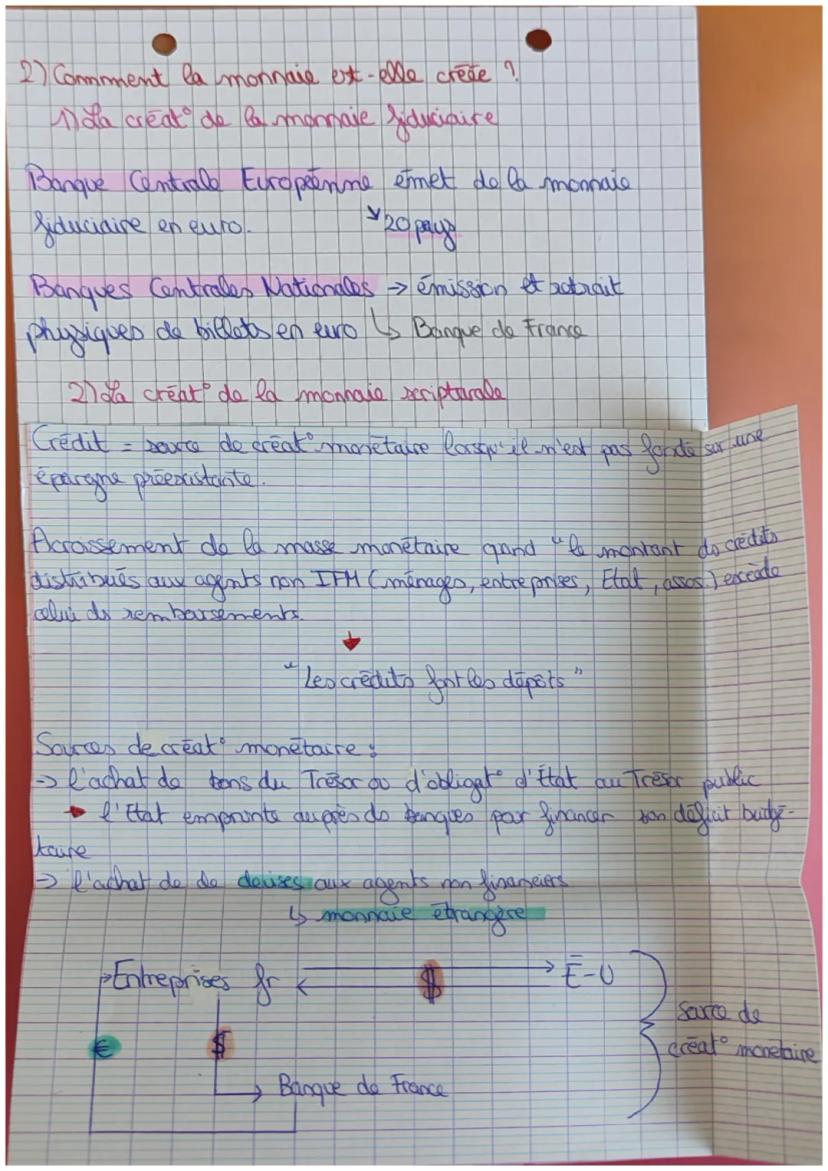 2) Comment la monnaie est-elle créée ?
1) La créat° de la monnaie fiduciaire
Banque Centrale Européenne émet de la monnaie
fiduciaire en euro. ↘ 20 pays
Banques Centrales Nationales → émission et retrait
physiques de billets en euro ↳ Banque de France
2) La créat° de la monnaie scripturale
Crédit = source de créat° monétaire lorsqu'il n'est pas fondé sur une
épargne préexistante.
Acroissement de la masse monétaire quand "le montant ds crédits
distribués aux agents non IFM (ménages, entreprises, Etat, assos.) excède
celui ds remboursements.
"Les crédits font les dépôts"
Sources de créat° monétaire :
→ l'achat de bons du Trésor ou d'obligat° d'État au Trésor public
➔ l'Etat emprunte auprès ds banques pour financer son déficit budgé-
taire
→ l'achat de de devises aux agents non financiers
↳ monnaie étrangère
Entreprises fr $ É-U
€ $ Source de
créat° monétaire
Banque de France